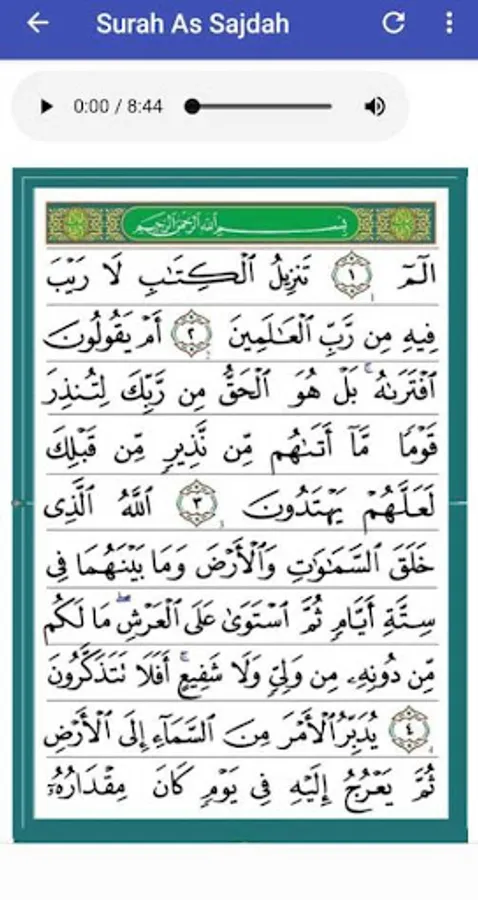 Surah As Sajdah
0:00 / 8:44
بِسْمِ اللَّهِ الرَّحْمَٰنِ الرَّحِيمِ
الٓمٓ ﴿١﴾ تَنزِيلُ ٱلْكِتَٰبِ لَا رَيْبَ
فِيهِ مِن رَّبِّ ٱلْعَٰلَمِينَ ﴿٢﴾ أَمْ يَقُولُونَ
ٱفْتَرَىٰهُ ۚ بَلْ هُوَ ٱلْحَقُّ مِن رَّبِّكَ لِتُنذِرَ
قَوْمًا مَّآ أَتَىٰهُم مِّن نَّذِيرٍ مِّن قَبْلِكَ
لَعَلَّهُمْ يَهْتَدُونَ ﴿٣﴾ ٱللَّهُ ٱلَّذِى
خَلَقَ ٱلسَّمَٰوَٰتِ وَٱلْأَرْضَ وَمَا بَيْنَهُمَا فِى
سِتَّةِ أَيَّامٍ ثُمَّ ٱسْتَوَىٰ عَلَى ٱلْعَرْشِ ۖ مَا لَكُم
مِّن دُونِهِۦ مِن وَلِىٍّ وَلَا شَفِيعٍ ۚ أَفَلَا تَتَذَكَّرُونَ
﴿٤﴾ يُدَبِّرُ ٱلْأَمْرَ مِنَ ٱلسَّمَآءِ إِلَى ٱلْأَرْضِ
ثُمَّ يَعْرُجُ إِلَيْهِ فِى يَوْمٍ كَانَ مِقْدَارُهُۥٓ